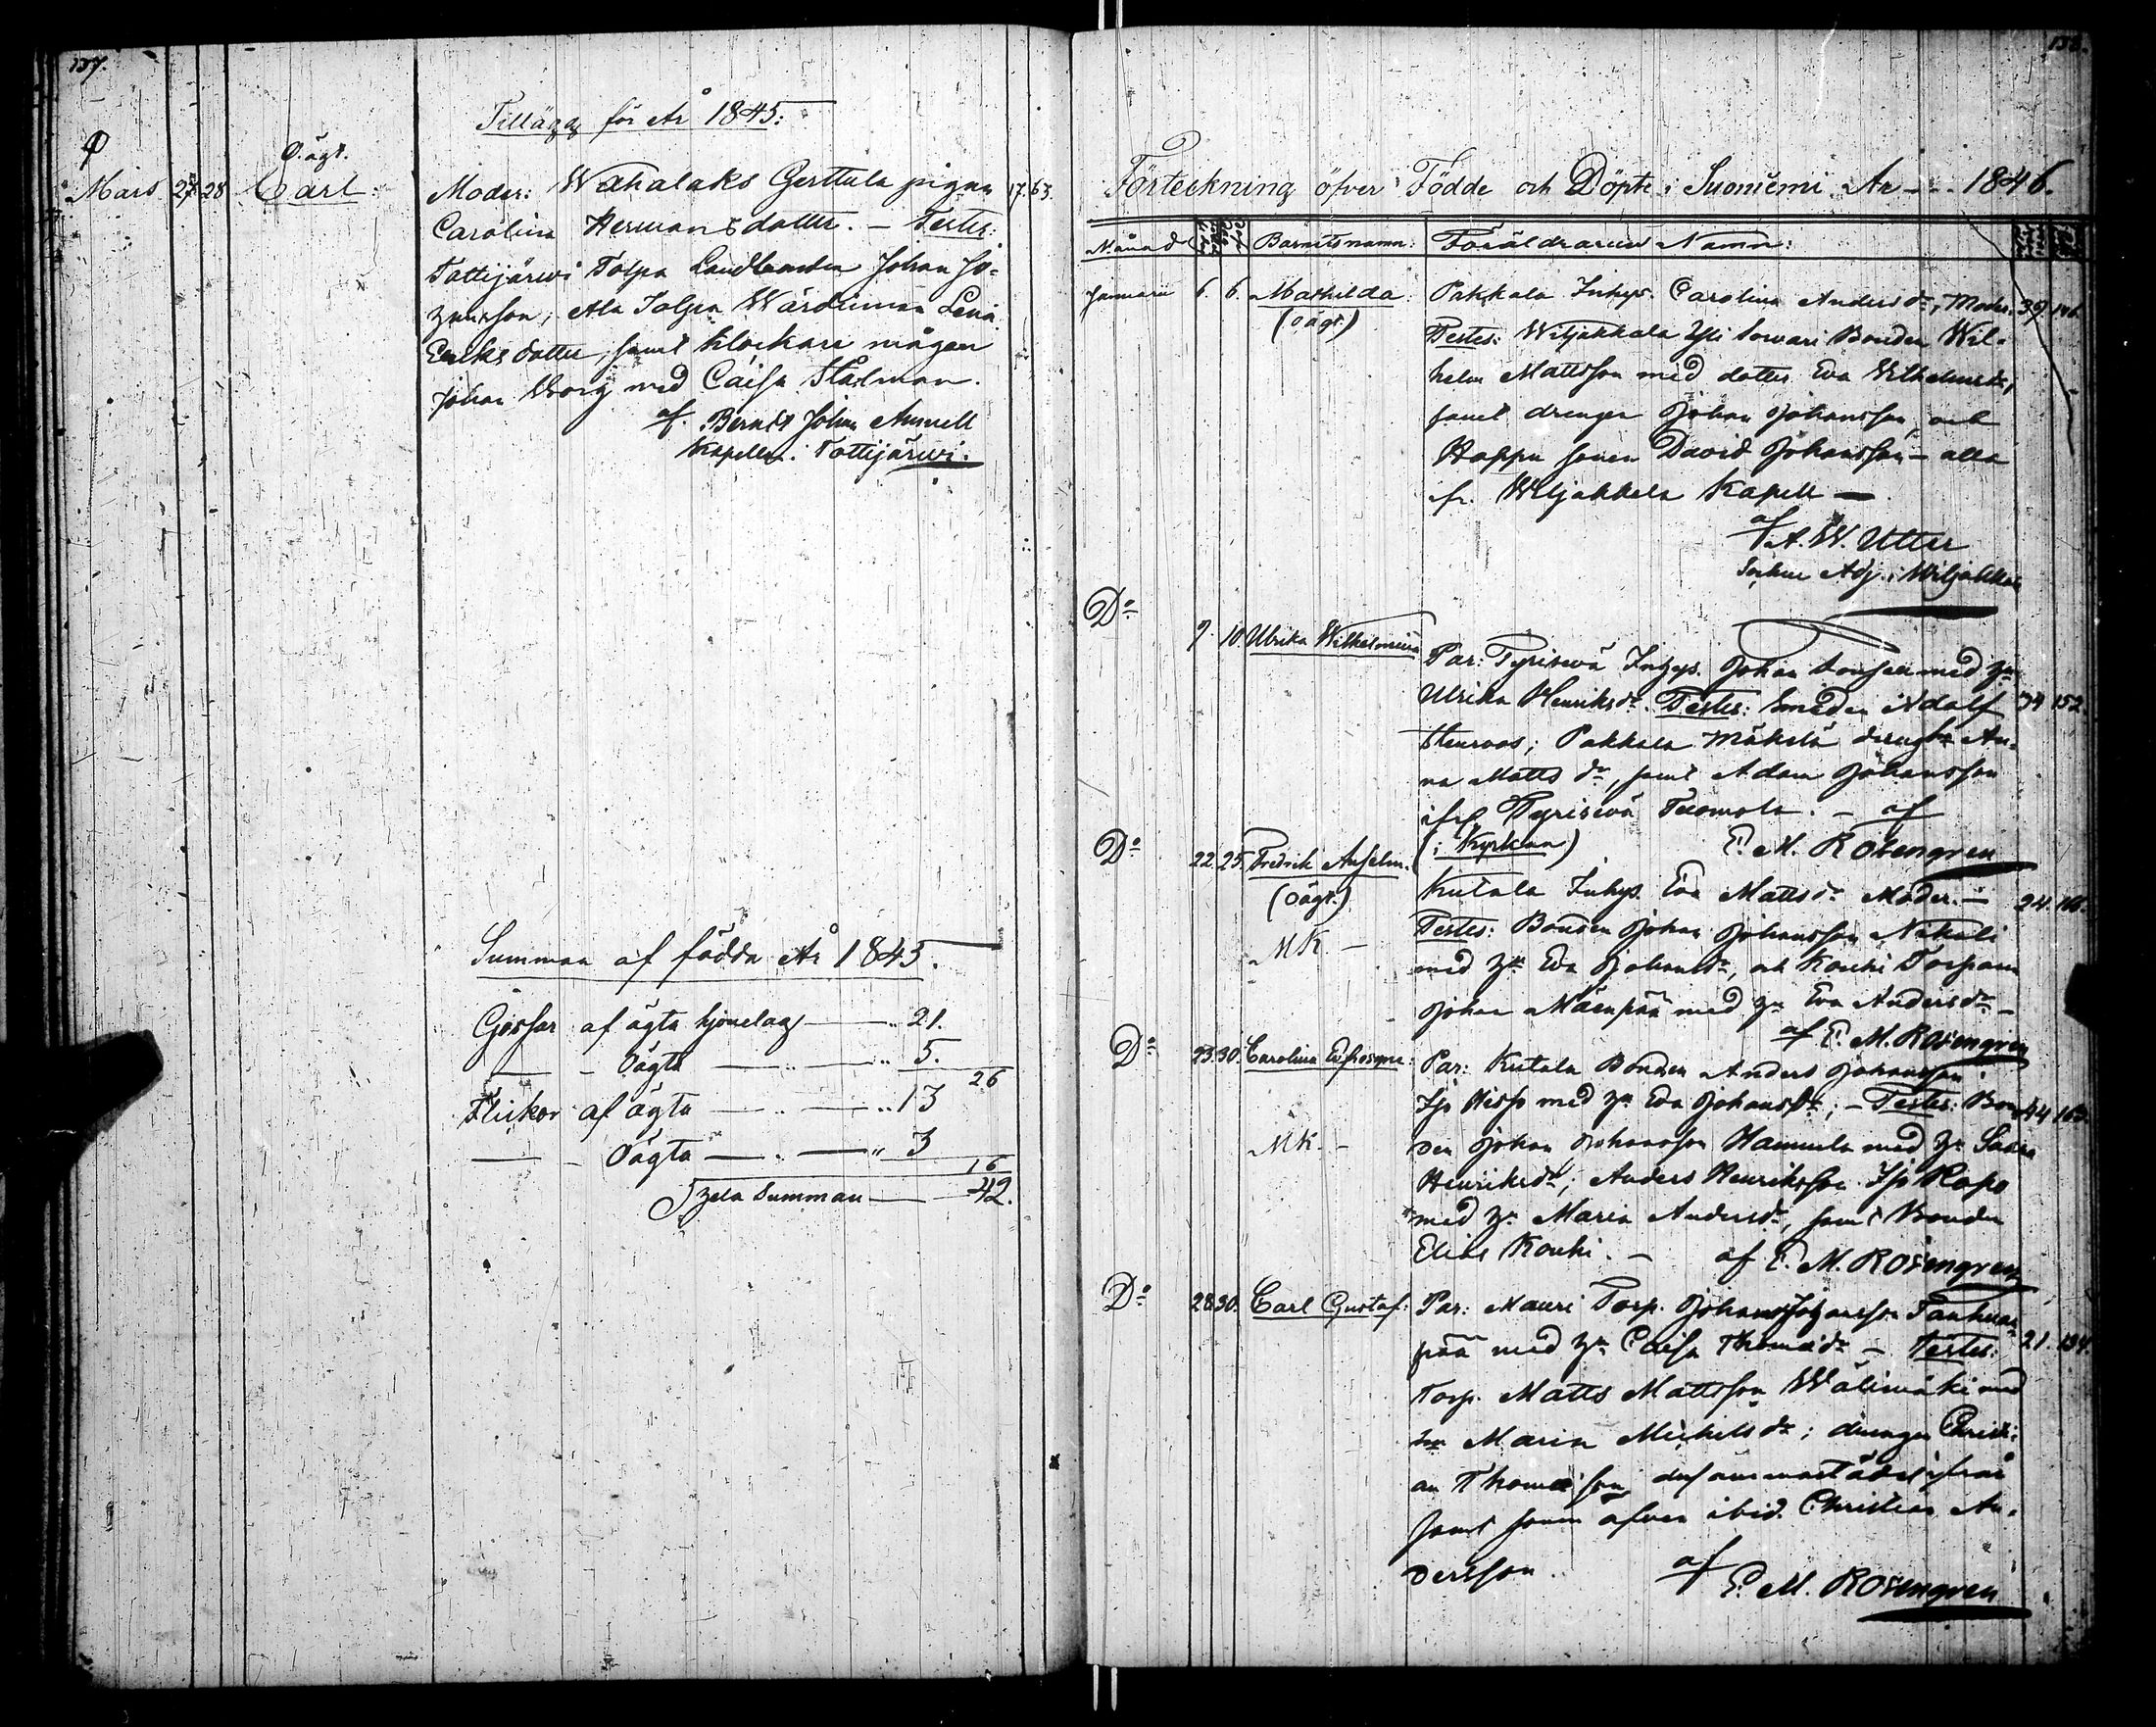 157.
Tillägg för År 1845:
Mars 27 28 O.ägt.
Carl: Moder: Wahalaks Gerttula pigan 17. 63.
Carolina Hermansdotter. – Testes:
Tottijärwi Tolpa Landbonden Johan Jo-
Ala Tolpa Wärdinnan Lena
Eriksdotter, samt klockare mågen
Johan Borg med Caisa Stålman.
af. Bernt Johan
Kapellan i Tottijärwi.
Summan af födda År 1845.
Gossar af ägta hjonelag — 21.
— Oägta — 5.
26
Flickor af ägta — 13
— Oägta — 3
16
Hela Summan — 42.
158.
Förteckning öfver Födde och Döpte i Suoniemi År - - 1846.
Månad Barnets namn: Föräldrarnes Namn:
Januarii 6. 6. Mathilda: Pakkala Inhys. Carolina Andersdr, Moder. 39. 146.
(oägt.) Testes: Wiljakkala Yli Sorvari Bonden Wil-
helm Mattsson med dotter Eva Wilhelmsdr,
samt drengen Johan Johansson, och
Happu sonen David Johansson – alla
fr. Wiljakkala Kapell —
af A. W. Utter
Sockne Adj. i Wiljakkala
Do 7. 10. Ulrika Wilhelmina Par: Tyrisevä Inhys. Johan med hu
Ulrika Henriksdr. Testes: Smeden Adolf 34 152.
Stenroos; Pakkala Mäkelä An-
na Mattsdr, samt Adam Johansson
ifr Tyrisevä Tuomola. – af
(i Kyrkan) E. M. Rosengren
Do 22. 25. Fredrik Anselm. Kutala Inhys. Eva Mattsdr Moder. – 24.
(Oägt.) Testes: Bonden Johan Johansson Nokali
MK. – med hu Eva Johansdr, och Kouhi Torparn
Johan Mäenpää med hu Eva Andersdr –
af E. M. Rosengren
Do 23. 30. Carolina Eufrosyne: Par: Kutala Bonden Anders Johansson
Iso Hiisso med hu Eva Johansdr; – Testes: Bon- 44 163.
MK. – den Johan Johansson Hannula med hu Saara
Henriksdr; Anders Henriksson Iso Rapo
med hu Maria Andersdr, samt Bonden
Elias Kouhi. – af E. M. Rosengren
Do 28. 30. Carl Gustaf: Par: Mauri Torp. Johan Johansson Tanhuan-
pää med hu Caisa Thomædr – Testes: 21. 134.
Torp. Matts Mattsson Wälimäki med
hu Maria Michelsdr; drengen Christi-
an Thomæson dersammastädes ifrån
samt sonen äfven ibid. Christian An-
dersson. af E. M. Rosengren